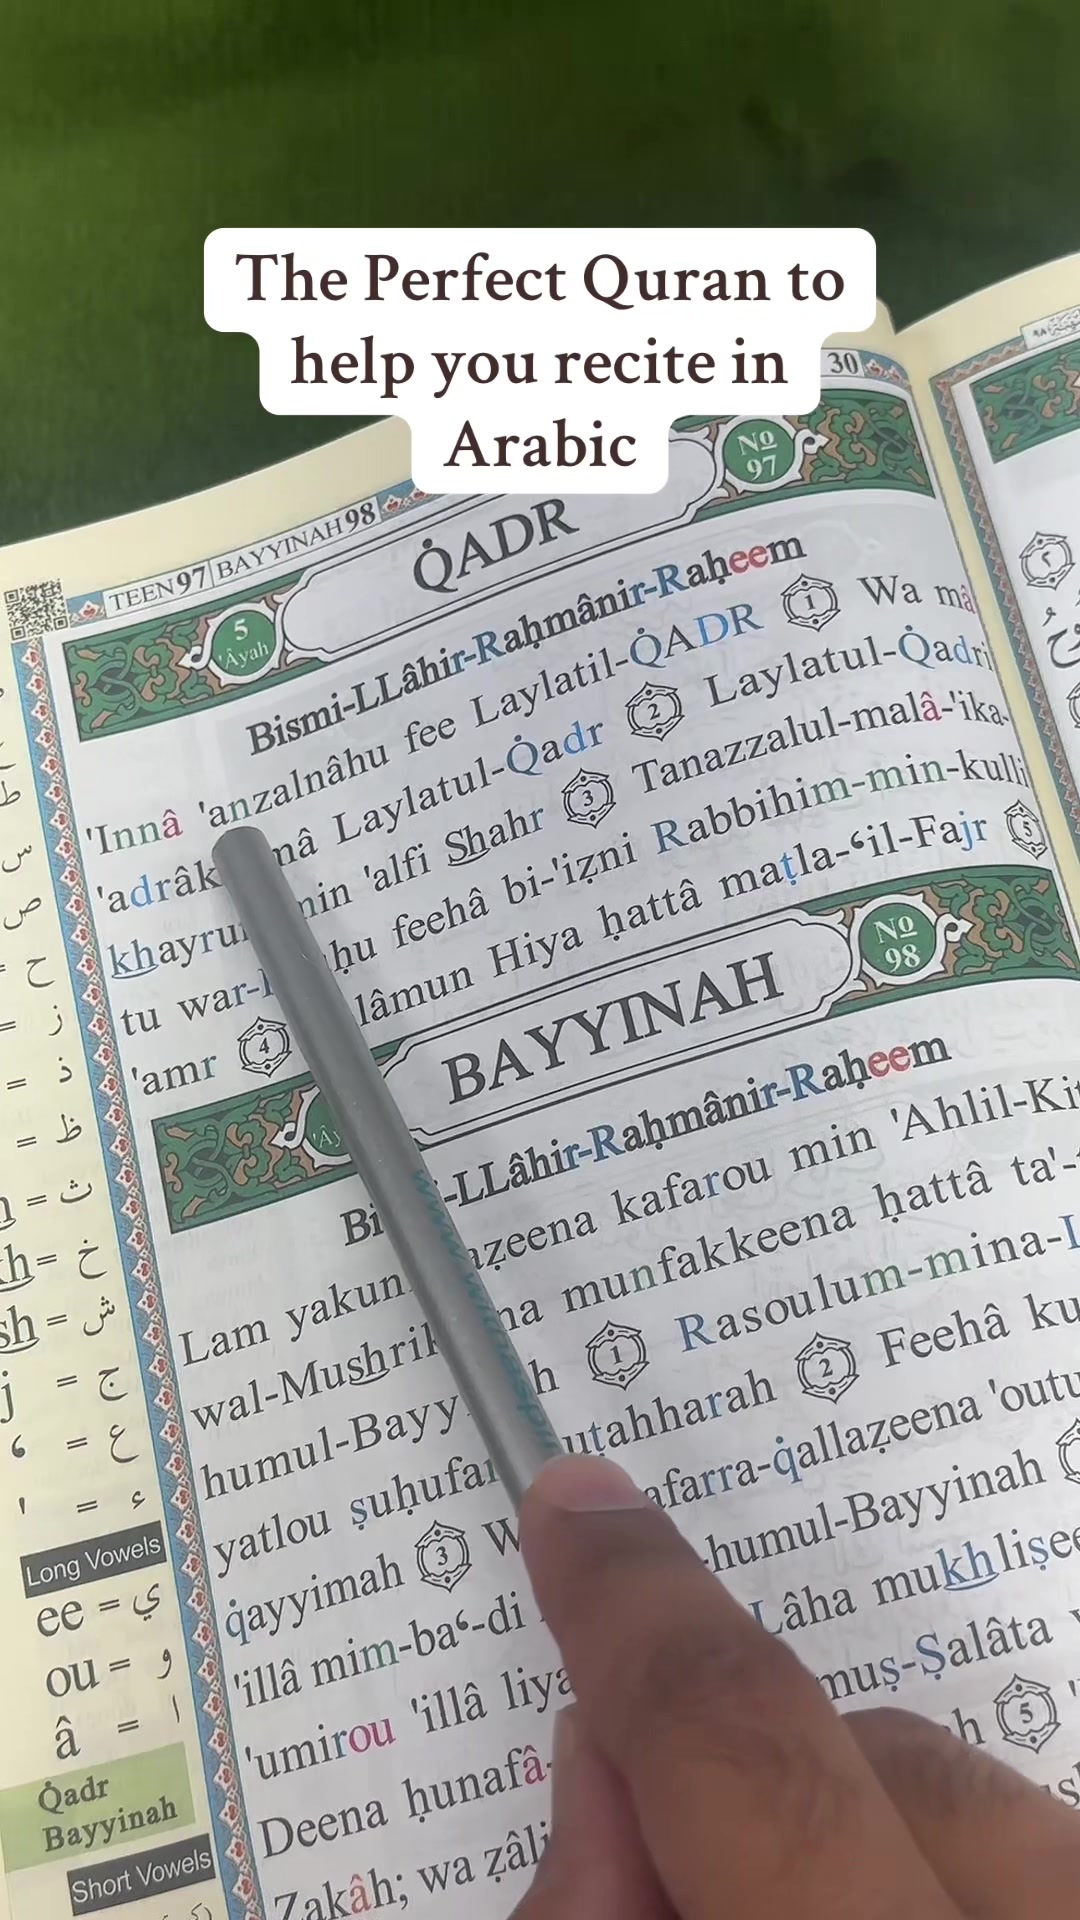 The Perfect Quran to
help you recite in
Arabic
30
TEEN 97 BAYYINAH 98
No 97
QADR
5 'Âyah
Bismi-LLâhir-Raḥmânir-Raḥeem
'Innâ 'anzalnâhu fee Laylatil-Q̇ADR 1 Wa mâ
'adrâk mâ Laylatul-Q̇adr 2 Laylatul-Q̇adri
khayru min 'alfi Shahr 3 Tanazzalul-malâ-'ika-
tu war- feehâ bi-'iẓni Rabbihim-min-kulli
'amr 4 Hiya ḥattâ maṭla-‘il-Fajr 5
No 98
BAYYINAH
-LLâhir-Raḥmânir-Raḥeem
Lam yakun kafarou min 'Ahlil-Kit
wal-Mushrik na munfakkeena ḥattâ ta'-
humul-Bayy h 1 Rasoulum-mina-L
yatlou ṣuḥufa uṭahharah 2 Feehâ ku
q̇ayyimah 3 W afarra-q̇allaẓeena 'outu
'illâ mim-ba‘-di -humul-Bayyinah
'umirou 'illâ liya Lâha mukhliṣee
Deena ḥunafâ- muṣ-Ṣalâta
Zakâh; wa ẓâli h 5
ط
س
ص
= ح
= ز
= ذ
= ظ
= ث
kh = خ
sh = ش
j = ج
‘ = ع
' = ء
Long Vowels
ee = ي
ou = و
â = ا
Q̇adr
Bayyinah
Short Vowels